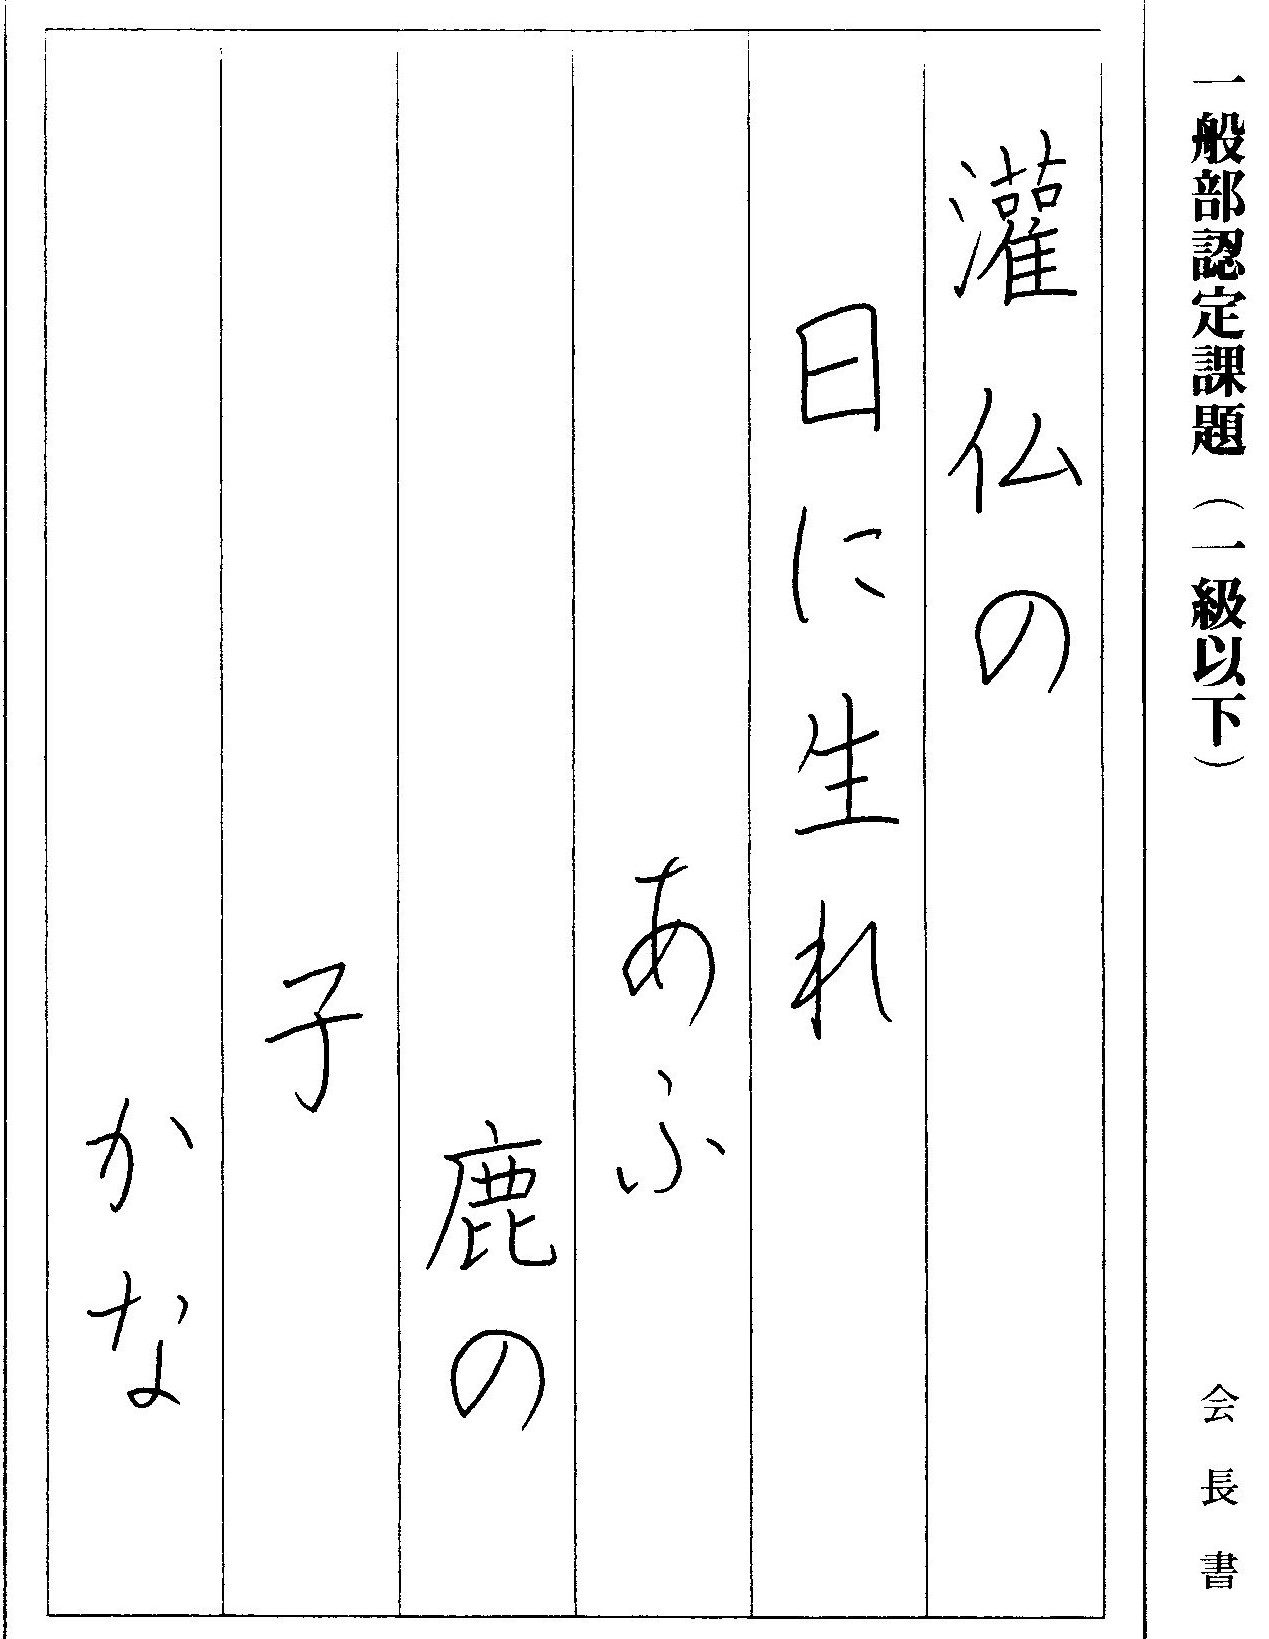 一般部認定課題（一級以下）
会長書
灌仏の
日に生れ
あふ
鹿の
子
かな